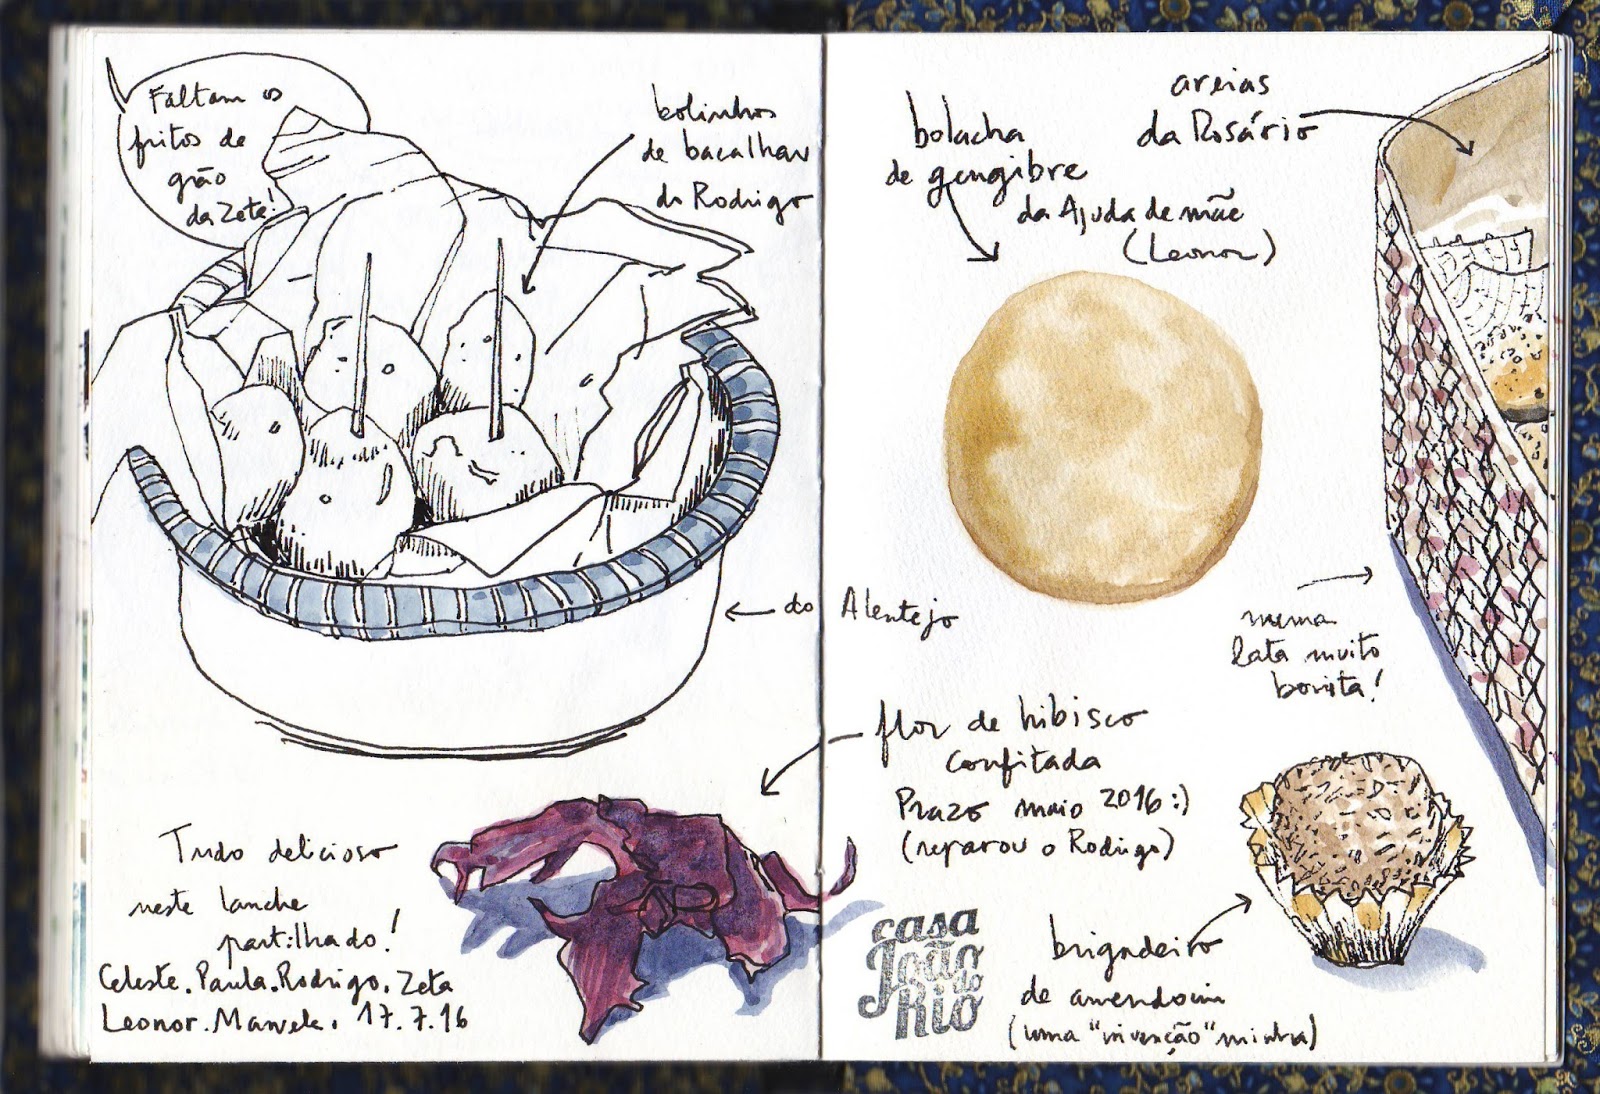 Faltam os
fritos de
grão
da Zeta!
bolinhos
de bacalhau
do Rodrigo
do Alentejo
Tudo delicioso
neste lanche
partilhado!
Celeste. Paula. Rodrigo. Zeta
Leonor. Manuela. 17.7.16
bolacha
de gengibre
da Ajuda de mãe
(Leonor)
areias
da Rosário
numa
lata muito
bonita!
flor de hibisco
confitada
Prazo maio 2016:)
(reparou o Rodrigo)
casa
João
do
Rio
brigadeiro
de amendoim
(uma "invenção" minha)